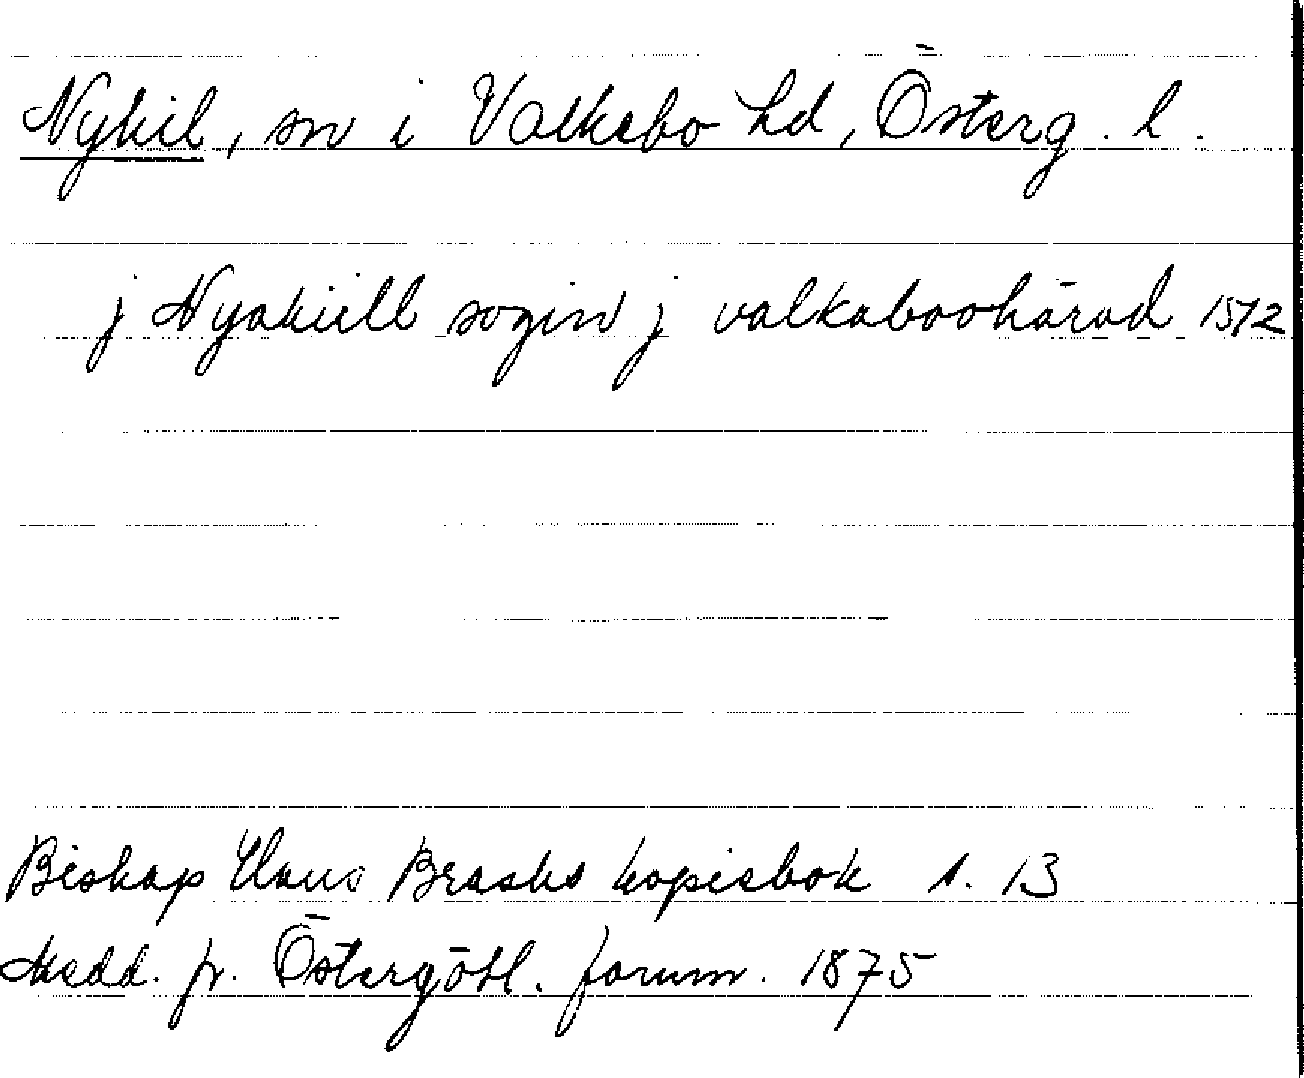 Nykil, sn i Valkebo hd, Österg. l.
j Nyakiill sogin j valkaboohärad 1512
Biskop Hans Brasks kopiebok s. 13
Medd. fr. Östergötl. fornm. 1875